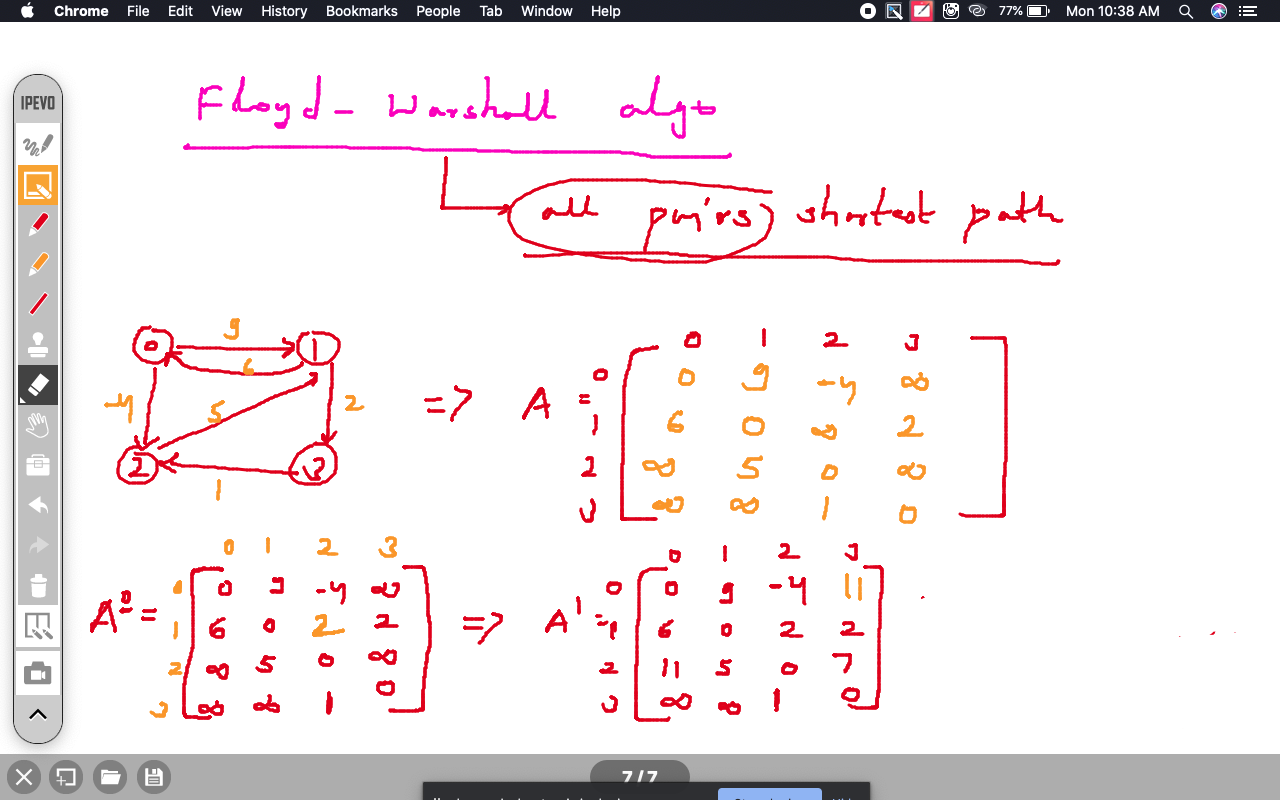 Chrome File Edit View History Bookmarks People Tab Window Help 77% Mon 10:38 AM
IPEVO
Floyd - Warshall algo
all pairs shortest path
0 9 1
6
-4 5 2
2 3
1
=> A =
0 1 2 3
0 0 9 -4 ∞
1 6 0 ∞ 2
2 ∞ 5 0 ∞
3 ∞ ∞ 1 0
A⁰ =
0 1 2 3
0 0 9 -4 ∞
1 6 0 2 2
2 ∞ 5 0 ∞
3 ∞ ∞ 1 0
=> A¹ =
0 1 2 3
0 0 9 -4 11
1 6 0 2 2
2 11 5 0 7
3 ∞ ∞ 1 0
7/7